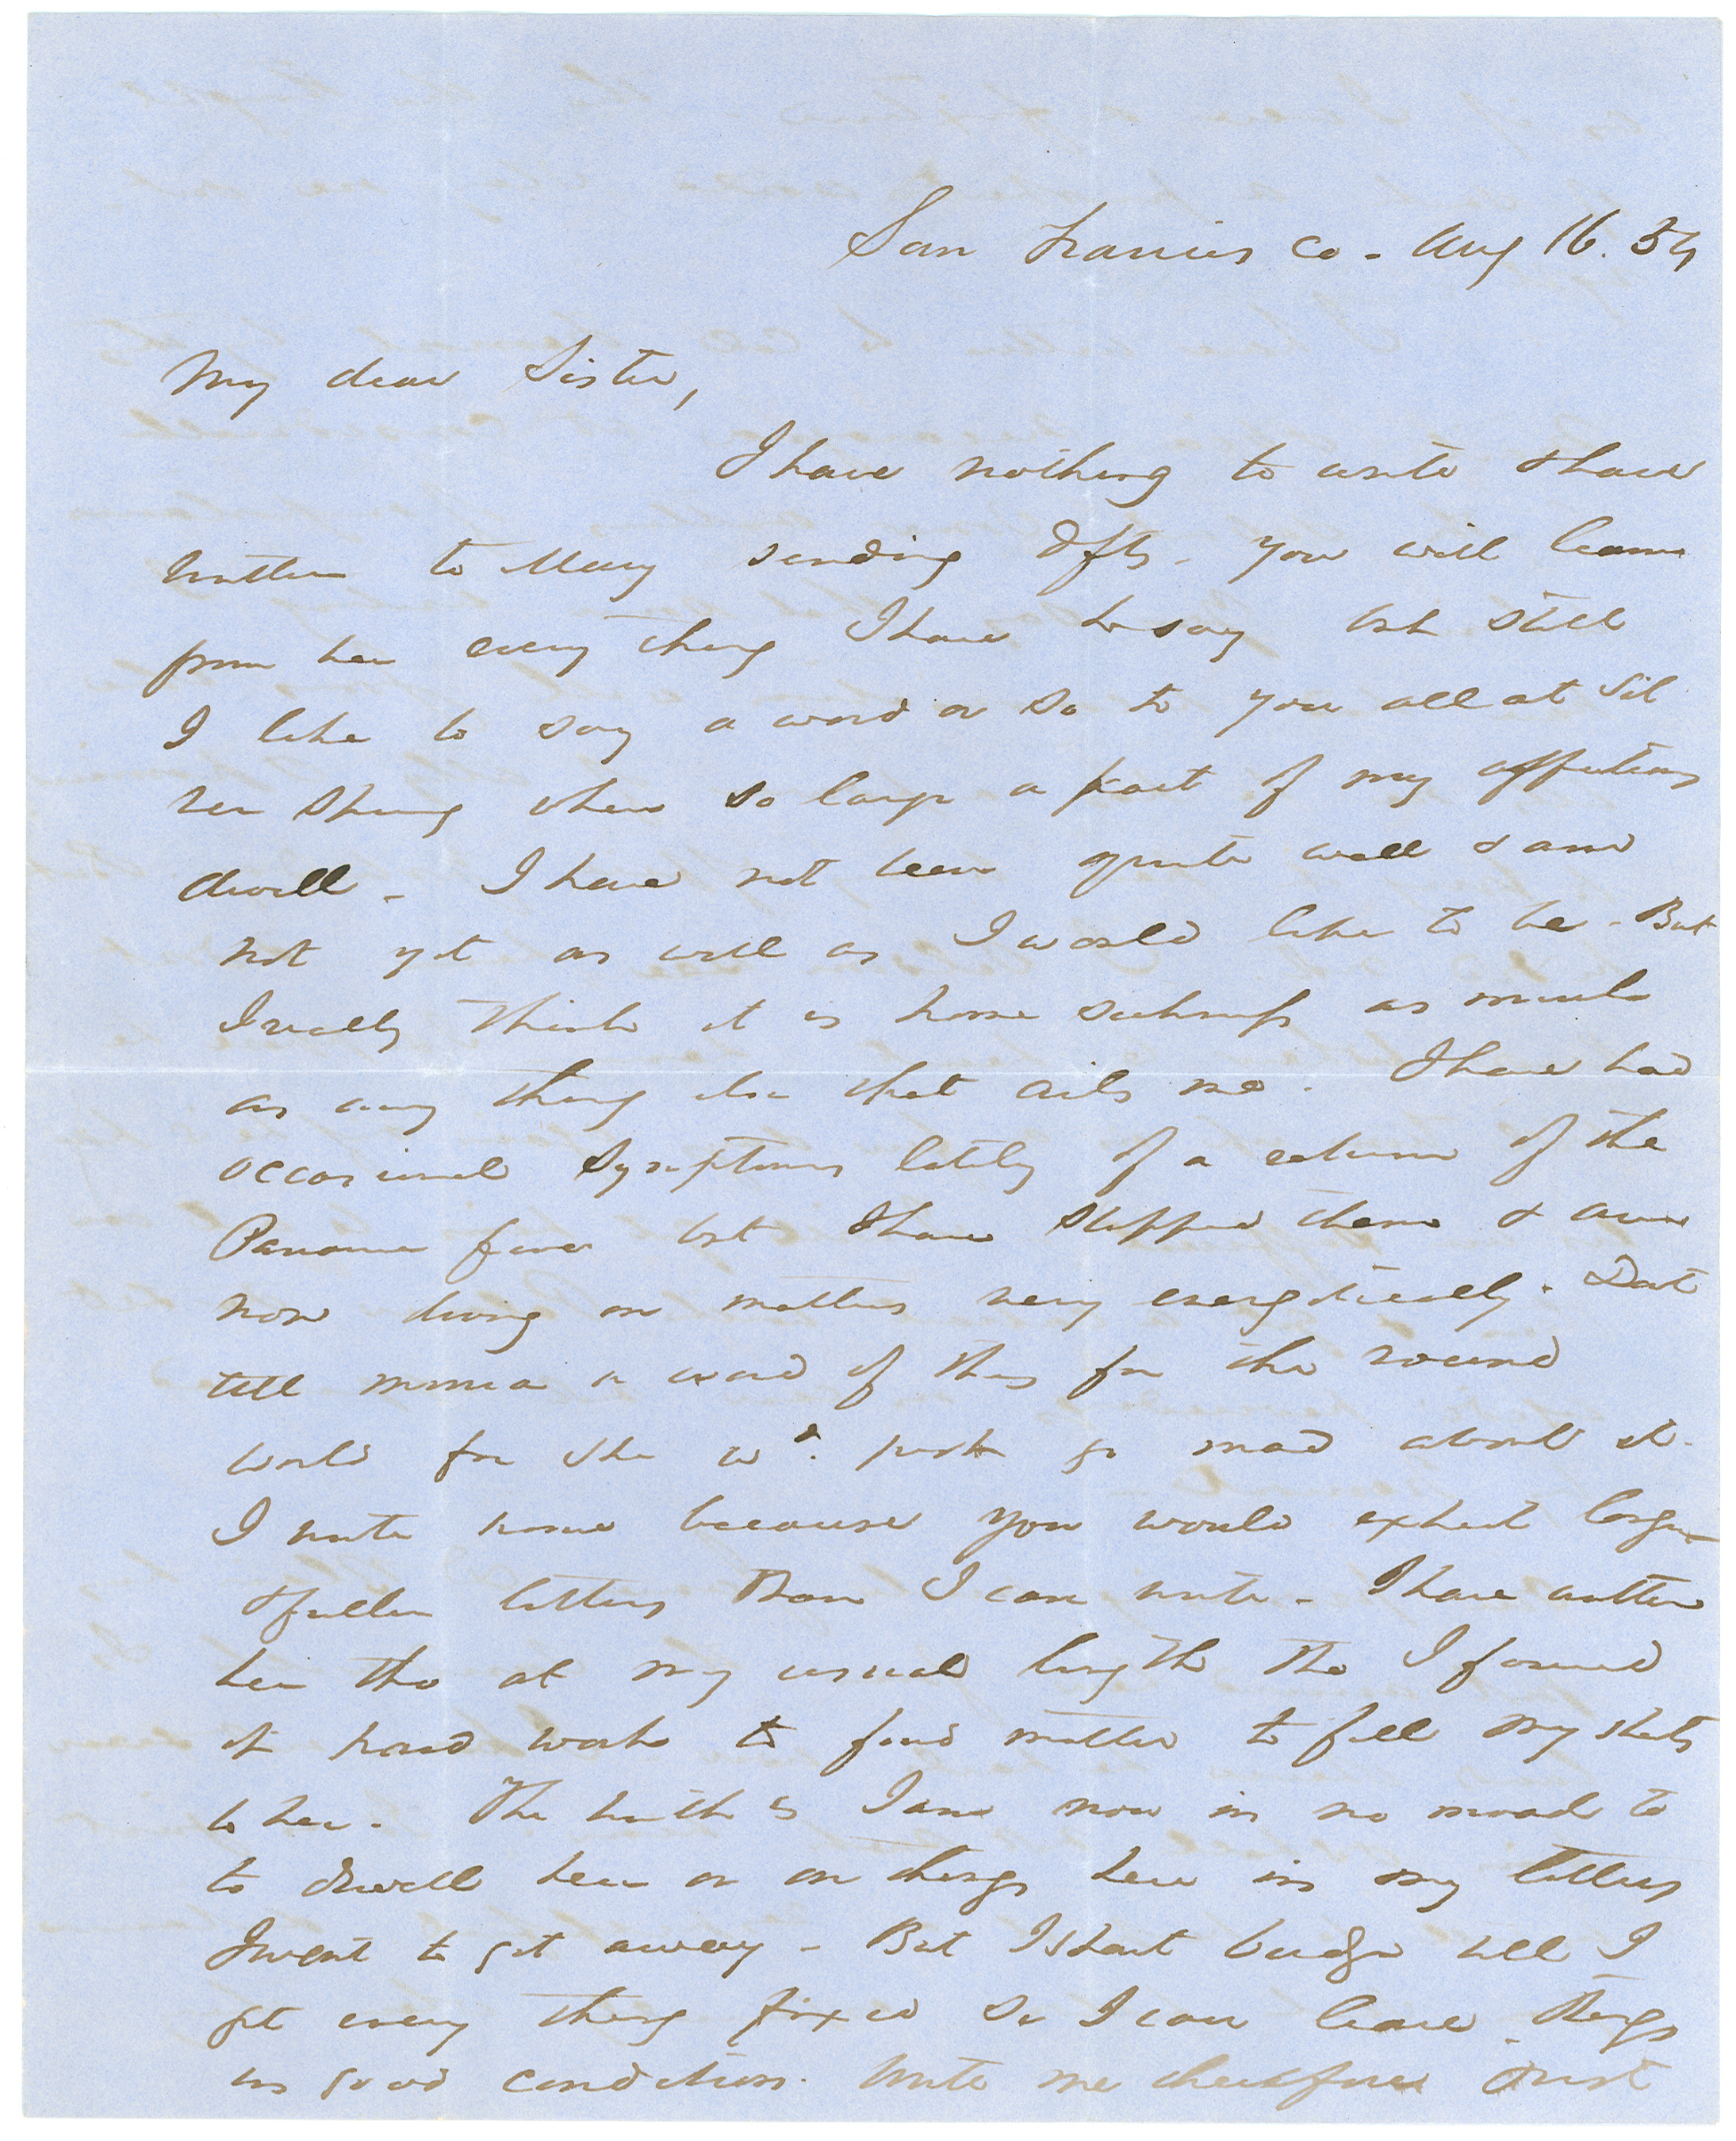 San Francis co - Aug 16. 54
My dear Sister,
I have nothing to write & have
written to Mary sending Dfts - you will learn
from her every thing I have to say but still
I like to say a word or so to you all at Sil
ver Spring where so large a part of my affections
dwell - I have not been quite well & am
not yet as well as I would like to be - But
I really think it is home sickness as much
as any thing else that ails me. I have had
occasional symptoms lately of a return of the
Panama fever but I have stopped them & am
now driving on matters very energetically. Dont
tell Minna a word of this for the round
world for she wd. just go mad about it.
I write none because you would expect longer
& fuller letters than I can write - I have written
her tho at my usual length tho I found
it hard work to find matter to fill my sheets
to her. The truth is I am now in no mood to
to dwell here or on things here in my letters
I want to get away - But I shant budge till I
get every thing fixed so I can leave things
in good condition. Write me therefore just